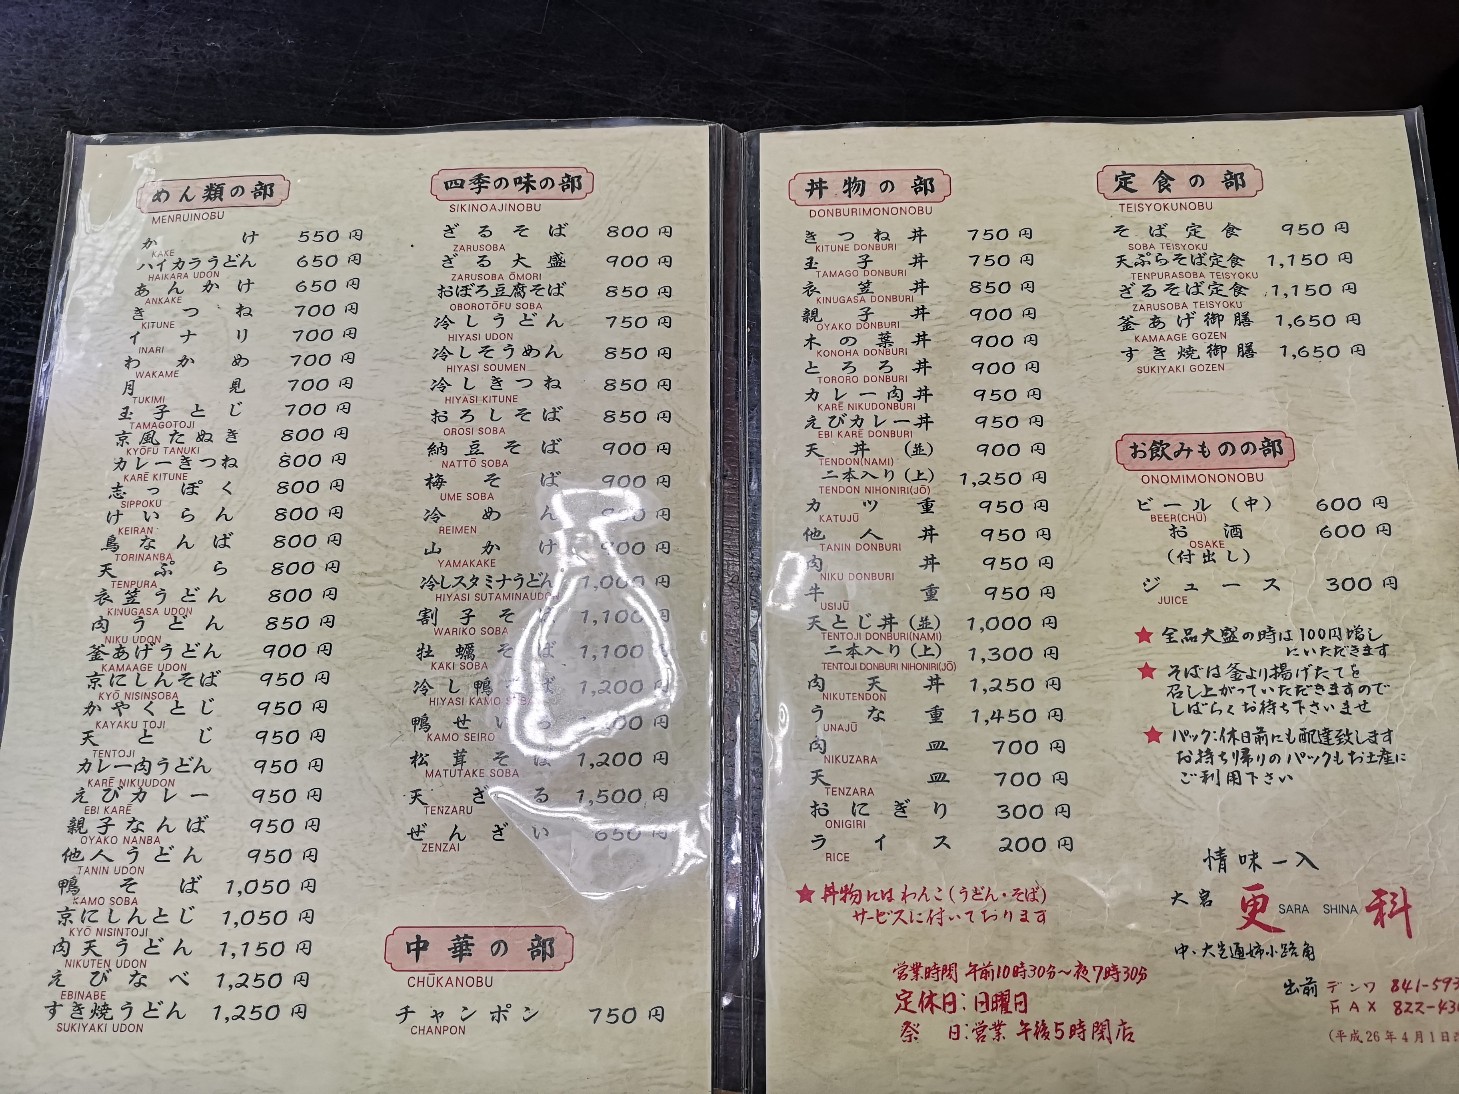 めん類の部
MENRUINOBU
かけ 550円
KAKE
ハイカラうどん 650円
HAIKARA UDON
あんかけ 650円
ANKAKE
きつね 700円
KITUNE
イナリ 700円
INARI
わかめ 700円
WAKAME
月見 700円
TUKIMI
玉子とじ 700円
TAMAGOTOJI
京風たぬき 800円
KYŌFU TANUKI
カレーきつね 800円
KARĒ KITUNE
志っぽく 800円
SIPPOKU
けいらん 800円
KEIRAN
鳥なんば 800円
TORINANBA
天ぷら 800円
TENPURA
衣笠うどん 800円
KINUGASA UDON
肉うどん 850円
NIKU UDON
釜あげうどん 900円
KAMAAGE UDON
京にしんそば 950円
KYŌ NISINSOBA
かやくとじ 950円
KAYAKU TOJI
天とじ 950円
TENTOJI
カレー肉うどん 950円
KARĒ NIKUUDON
えびカレー 950円
EBI KARĒ
親子なんば 950円
OYAKO NANBA
他人うどん 950円
TANIN UDON
鴨そば 1,050円
KAMO SOBA
京にしんとじ 1,050円
KYŌ NISINTOJI
肉天うどん 1,150円
NIKUTEN UDON
えびなべ 1,250円
EBINABE
すき焼うどん 1,250円
SUKIYAKI UDON
四季の味の部
SIKINOAJINOBU
ざるそば 800円
ZARUSOBA
ざる大盛 900円
ZARUSOBA ŌMORI
おぼろ豆腐そば 850円
OBOROTŌFU SOBA
冷しうどん 750円
HIYASI UDON
冷しそうめん 850円
HIYASI SOUMEN
冷しきつね 850円
HIYASI KITUNE
おろしそば 850円
OROSI SOBA
納豆そば 900円
NATTŌ SOBA
梅そば 900円
UME SOBA
冷めん 円
REIMEN
山かけ 円
YAMAKAKE
冷しスタミナうどん 1,000円
HIYASI SUTAMINAUDON
割子そば 1,100円
WARIKO SOBA
牡蠣そば 1,100円
KAKI SOBA
冷し鴨そば 1,200円
HIYASI KAMO SOBA
鴨せいろ 円
KAMO SEIRO
松茸そば 1,200円
MATUTAKE SOBA
天ざる 1,500円
TENZARU
ぜんざい 650円
ZENZAI
中華の部
CHŪKANOBU
チャンポン 750円
CHANPON
丼物の部
DONBURIMONONOBU
きつね丼 750円
KITUNE DONBURI
玉子丼 750円
TAMAGO DONBURI
衣笠丼 850円
KINUGASA DONBURI
親子丼 900円
OYAKO DONBURI
木の葉丼 900円
KONOHA DONBURI
とろろ丼 900円
TORORO DONBURI
カレー肉丼 950円
KARĒ NIKUDONBURI
えびカレー丼 950円
EBI KARĒ DONBURI
天丼(並) 900円
TENDON(NAMI)
二本入り(上) 1,250円
TENDON NIHONIRI(JŌ)
カツ重 950円
KATUJŪ
他人丼 950円
TANIN DONBURI
肉丼 950円
NIKU DONBURI
牛重 950円
USIJŪ
天とじ丼(並) 1,000円
TENTOJI DONBURI(NAMI)
二本入り(上) 1,300円
TENTOJI DONBURI NIHONIRI(JŌ)
肉天丼 1,250円
NIKUTENDON
うな重 1,450円
UNAJŪ
肉皿 700円
NIKUZARA
天皿 700円
TENZARA
おにぎり 300円
ONIGIRI
ライス 200円
RICE
★丼物にはわんこ(うどん・そば)
サービスに付いております
営業時間 午前10時30分～夜7時30分
定休日:日曜日
祭 日:営業 午後5時閉店
定食の部
TEISYOKUNOBU
そば定食 950円
SOBA TEISYOKU
天ぷらそば定食 1,150円
TENPURASOBA TEISYOKU
ざるそば定食 1,150円
ZARUSOBA TEISYOKU
釜あげ御膳 1,650円
KAMAAGE GOZEN
すき焼御膳 1,650円
SUKIYAKI GOZEN
お飲みものの部
ONOMIMONONOBU
ビール(中) 600円
BEER(CHŪ)
お酒 600円
OSAKE
(付出し)
ジュース 300円
JUICE
★全品大盛の時は100円増し
にいただきます
★そばは釜より揚げたてを
召し上がっていただきますので
しばらくお待ち下さいませ
★パック:休日前にも配達致します
お持ち帰りのパックもお土産に
ご利用下さい
情味一入
大宮 更科
SARA SHINA
中・大宮通姉小路角
出前 デンワ 841-593
FAX 822-43
(平成26年4月1日